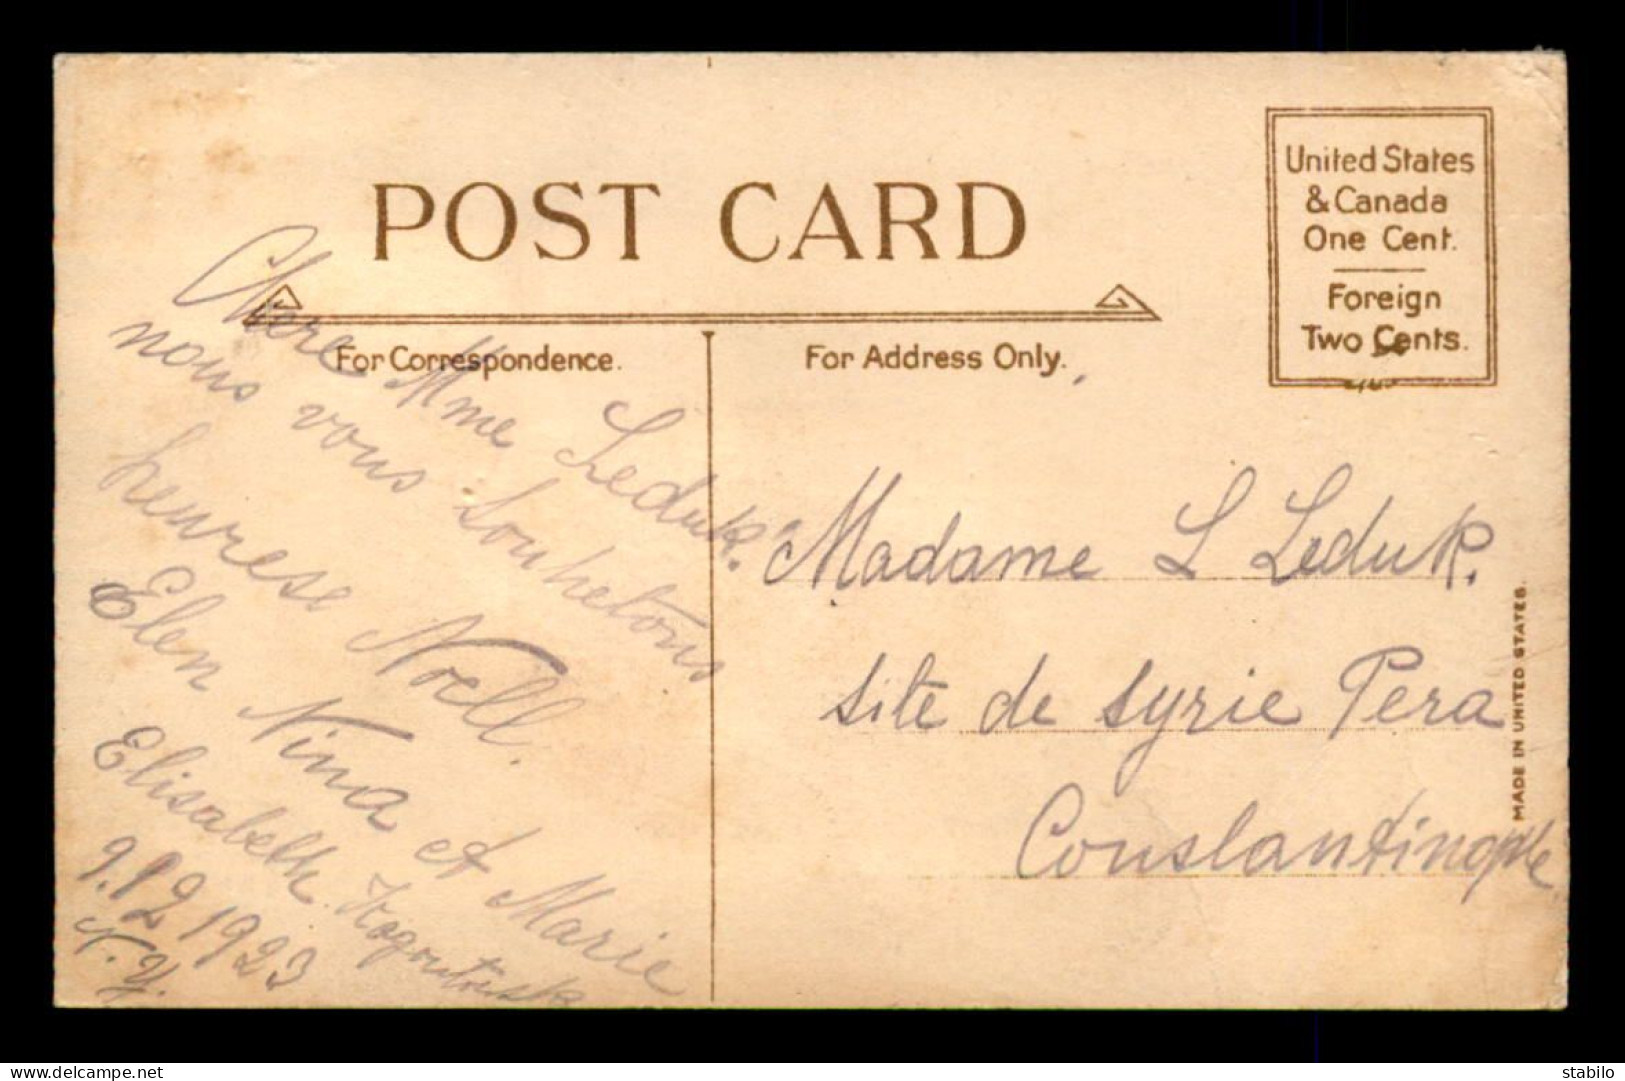 POST CARD
United States
& Canada
One Cent.
Foreign
Two Cents.
For Correspondence.
For Address Only.
Chere Mme Leduk.
nous vous souhetons
heurese Noell.
Elen Nina et Marie
Elisabeth
9.12 1923
N.Y.
Madame L Leduk.
site de syrie Pera
Constantinople
MADE IN UNITED STATES.
www.delcampe.net
stabilo